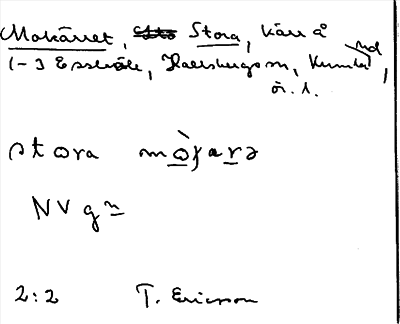 Mokärret, Stora, kärr å
1-3 Esshåle, Hallsbergs sn, Kumla hd,
ör. l.
stora mòʃarə
NV gn
2:2 T. Ericsson